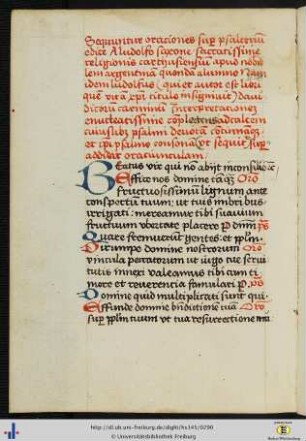 Sequuntur orationes sup psalteriū
edite A ludolfo saxone sacratissime
religionis carthusiensiū apud nobi
lem argentinā quondā alumno Nam
idem ludolfus (qui et autor est libri
quē vita xpi titulo insigniuit) Daui
dicorū carminū interpretationes
enucleatissime cōplectens ad calcem
cuiuslibꝫ psalmi deuotā
et ipsi psalmo consonā vt sequit sup
addidit oratiunculam
Beatus vir qui nō abijt in consilio
Effice nos domine tāqꝫ Oro
fructuosissimū lignum ante
conspectū tuum: vt tuis imbribus
irrigati: mereamur tibi suauium
fructuum vbertate placere P dnm ps
Quare fremuerūt gentes: et ppli
Dirumpe domine nostrorum Oro
vincula peccatorum vt iugo tue serui
tutis innexi valeamus tibi cum ti
more et reuerencia famulari P. ps
Domine quid multiplicati sunt qui
Effunde domine bndictionē tuā Oro
sup pplm tuum vt tua resurrectione mu
http://dl.ub.uni-freiburg.de/diglit/hs141/0290
© Universitätsbibliothek Freiburg